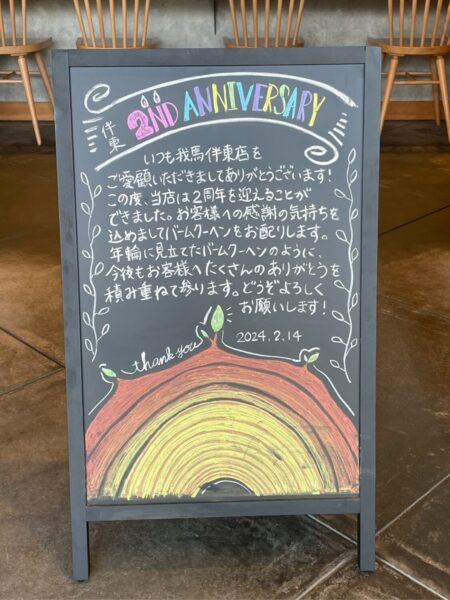 伴東
2ND ANNIVERSARY
いつも我馬伴東店を
ご愛顧いただきましてありがとうございます!
この度、当店は2周年を迎えることが
できました。お客様への感謝の気持ちを
込めましてバームクーヘンをお配りします。
年輪に見立てたバームクーヘンのように、
今後もお客様へたくさんのありがとうを
積み重ねて参ります。どうぞよろしく
お願いします!
thank you
2024.2.14